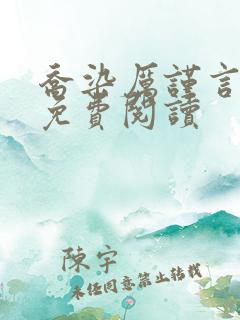 喬染厲謹言
免費閱讀
陳宇
未經同意禁止轉載